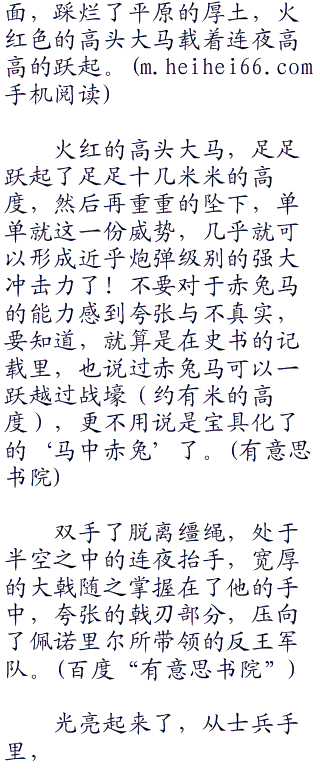 面，踩烂了平原的厚土，火
红色的高头大马载着连夜高
高的跃起。(m.heihei66.com
手机阅读)
火红的高头大马，足足
跃起了足足十几米米的高
度，然后再重重的坠下，单
单就这一份威势，几乎就可
以形成近乎炮弹级别的强大
冲击力了！不要对于赤兔马
的能力感到夸张与不真实，
要知道，就算是在史书的记
载里，也说过赤兔马可以一
跃越过战壕（约有米的高
度），更不用说是宝具化了
的‘马中赤兔’了。(有意思
书院)
双手了脱离缰绳，处于
半空之中的连夜抬手，宽厚
的大戟随之掌握在了他的手
中，夸张的戟刃部分，压向
了佩诺里尔所带领的反王军
队。(百度“有意思书院”)
光亮起来了，从士兵手
里，